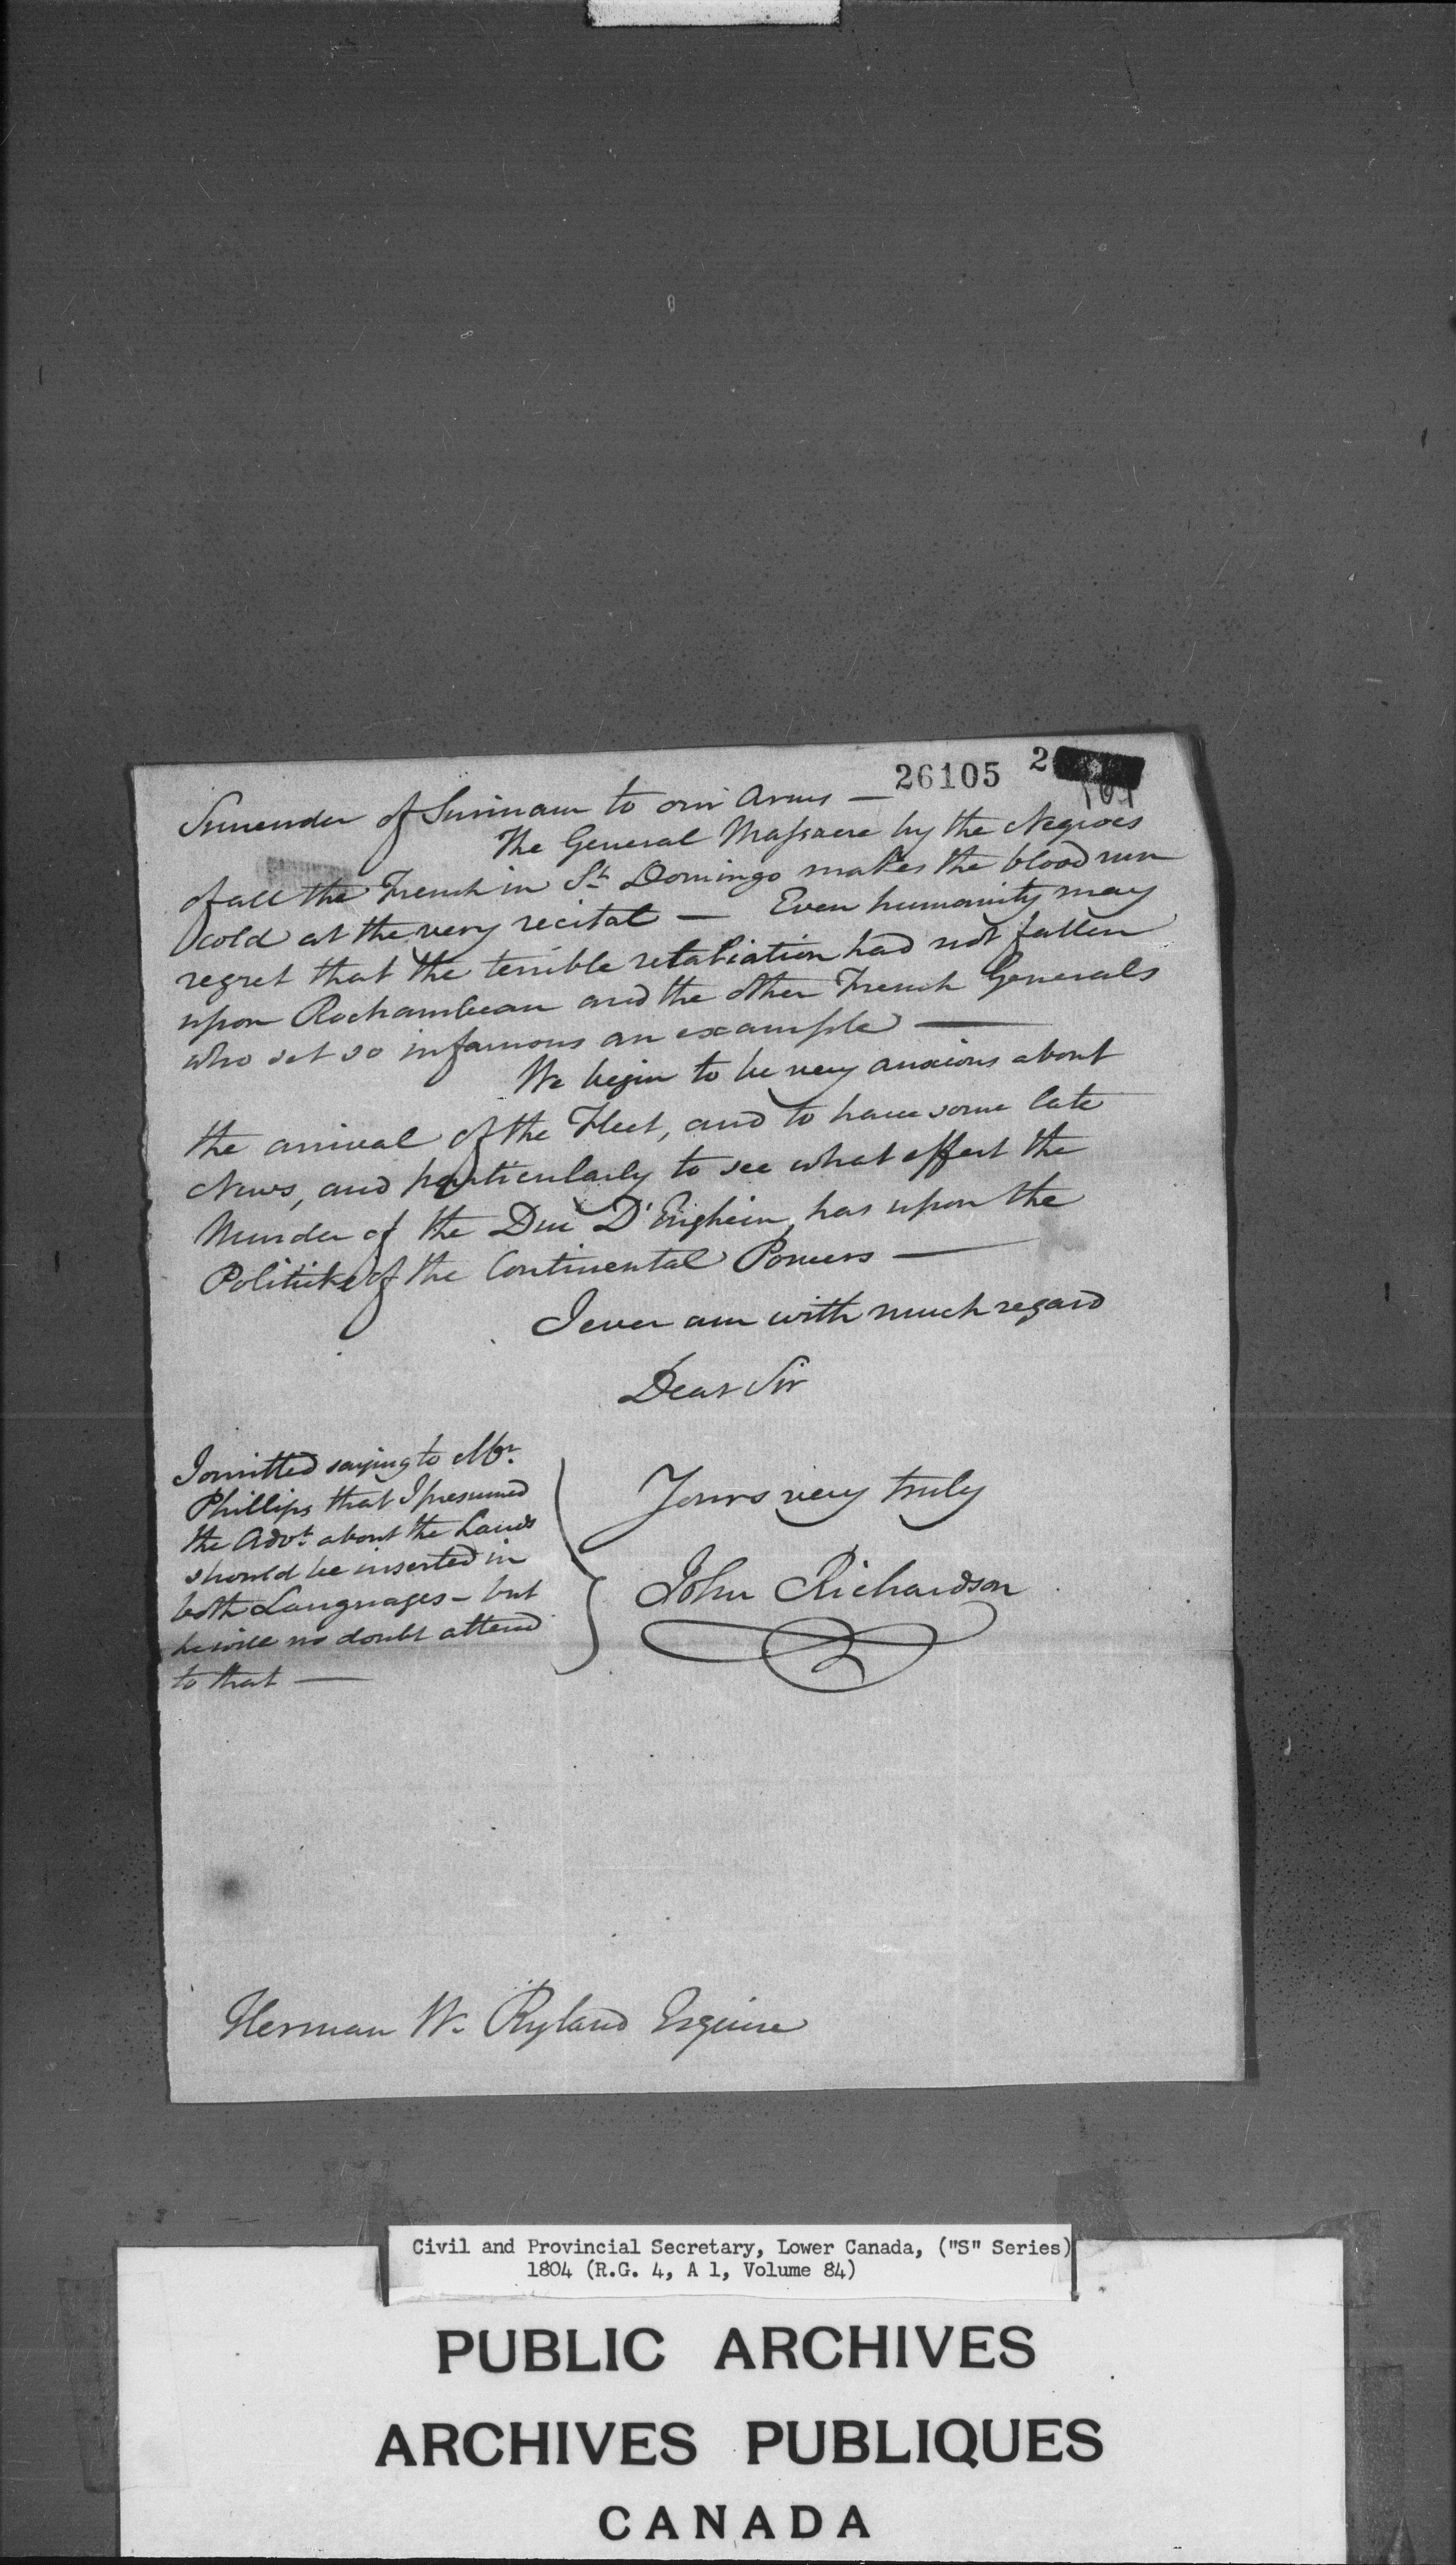 26105
2
Surrender of Surinam to our Arms —
The General Massacre by the Negroes
of all the French in St. Domingo makes the blood run
cold at the very recital — Even humanity may
regret that the terrible retaliation had not fallen
upon Rochambeau and the other French Generals
who set so infamous an example —
We begin to be very anxious about
the arrival of the Fleet, and to have some late
News, and particularly to see what effect the
Murder of the Duc D'Enghein, has upon the
Politicks of the Continental Powers —
I ever am with much regard
Dear Sir
Yours very truly
John Richardson
I omitted saying to Mr.
Phillips that I presumed
the Advt. about the Lands
should be inserted in
both Languages - but
he will no doubt attend
to that —
Herman W. Ryland Esquire
Civil and Provincial Secretary, Lower Canada, ("S" Series)
1804 (R.G. 4, A 1, Volume 84)
PUBLIC ARCHIVES
ARCHIVES PUBLIQUES
CANADA